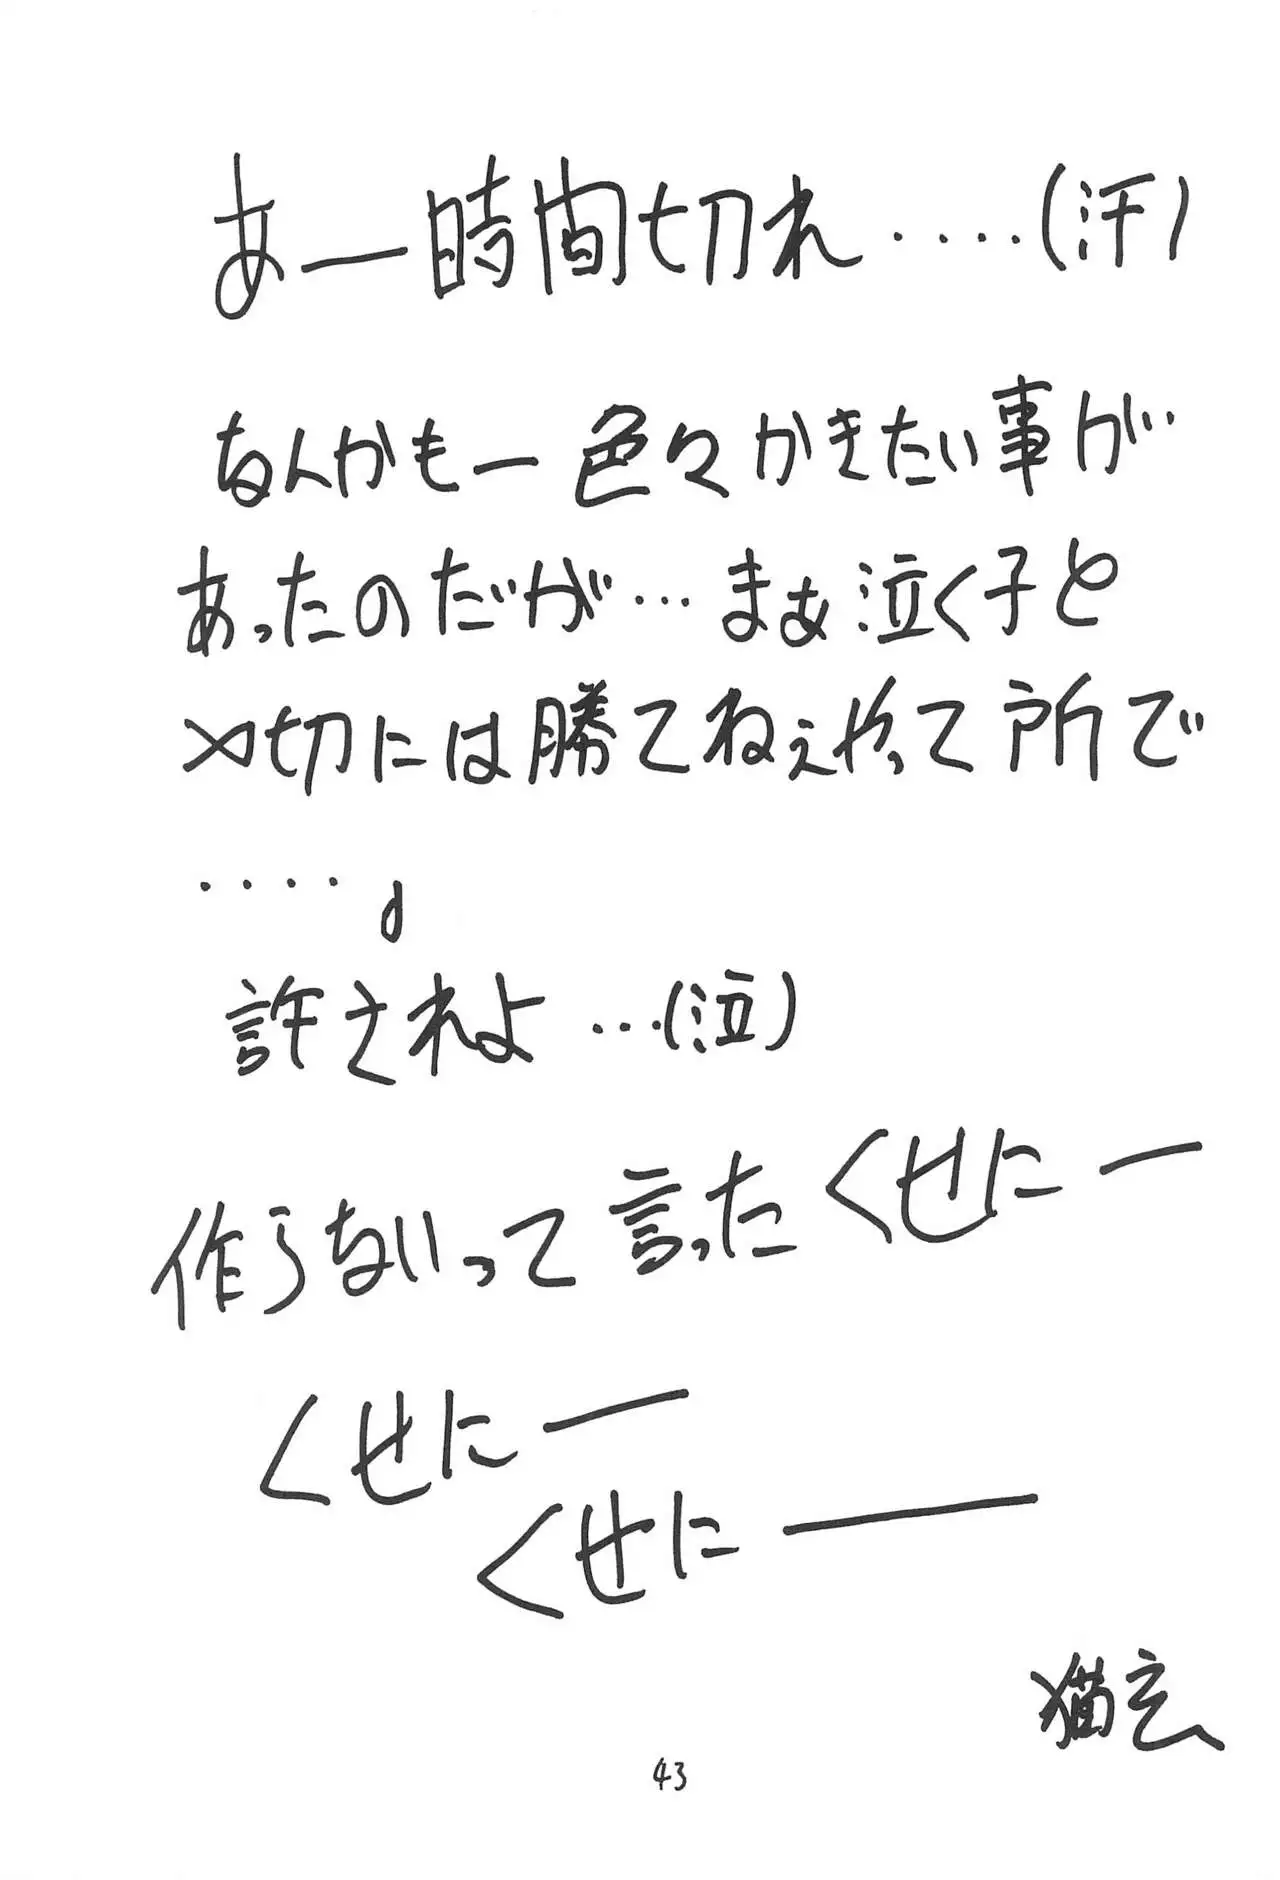 あー時間切れ・・・・・(汗)
なんかも一色々かきたい事が
あったのだが…まぁ泣く子と
〆切には勝てねぇやって所で
・・・・。
許されよ…(泣)
作らないって言ったくせにー
くせにー
くせにー
猫玄
43